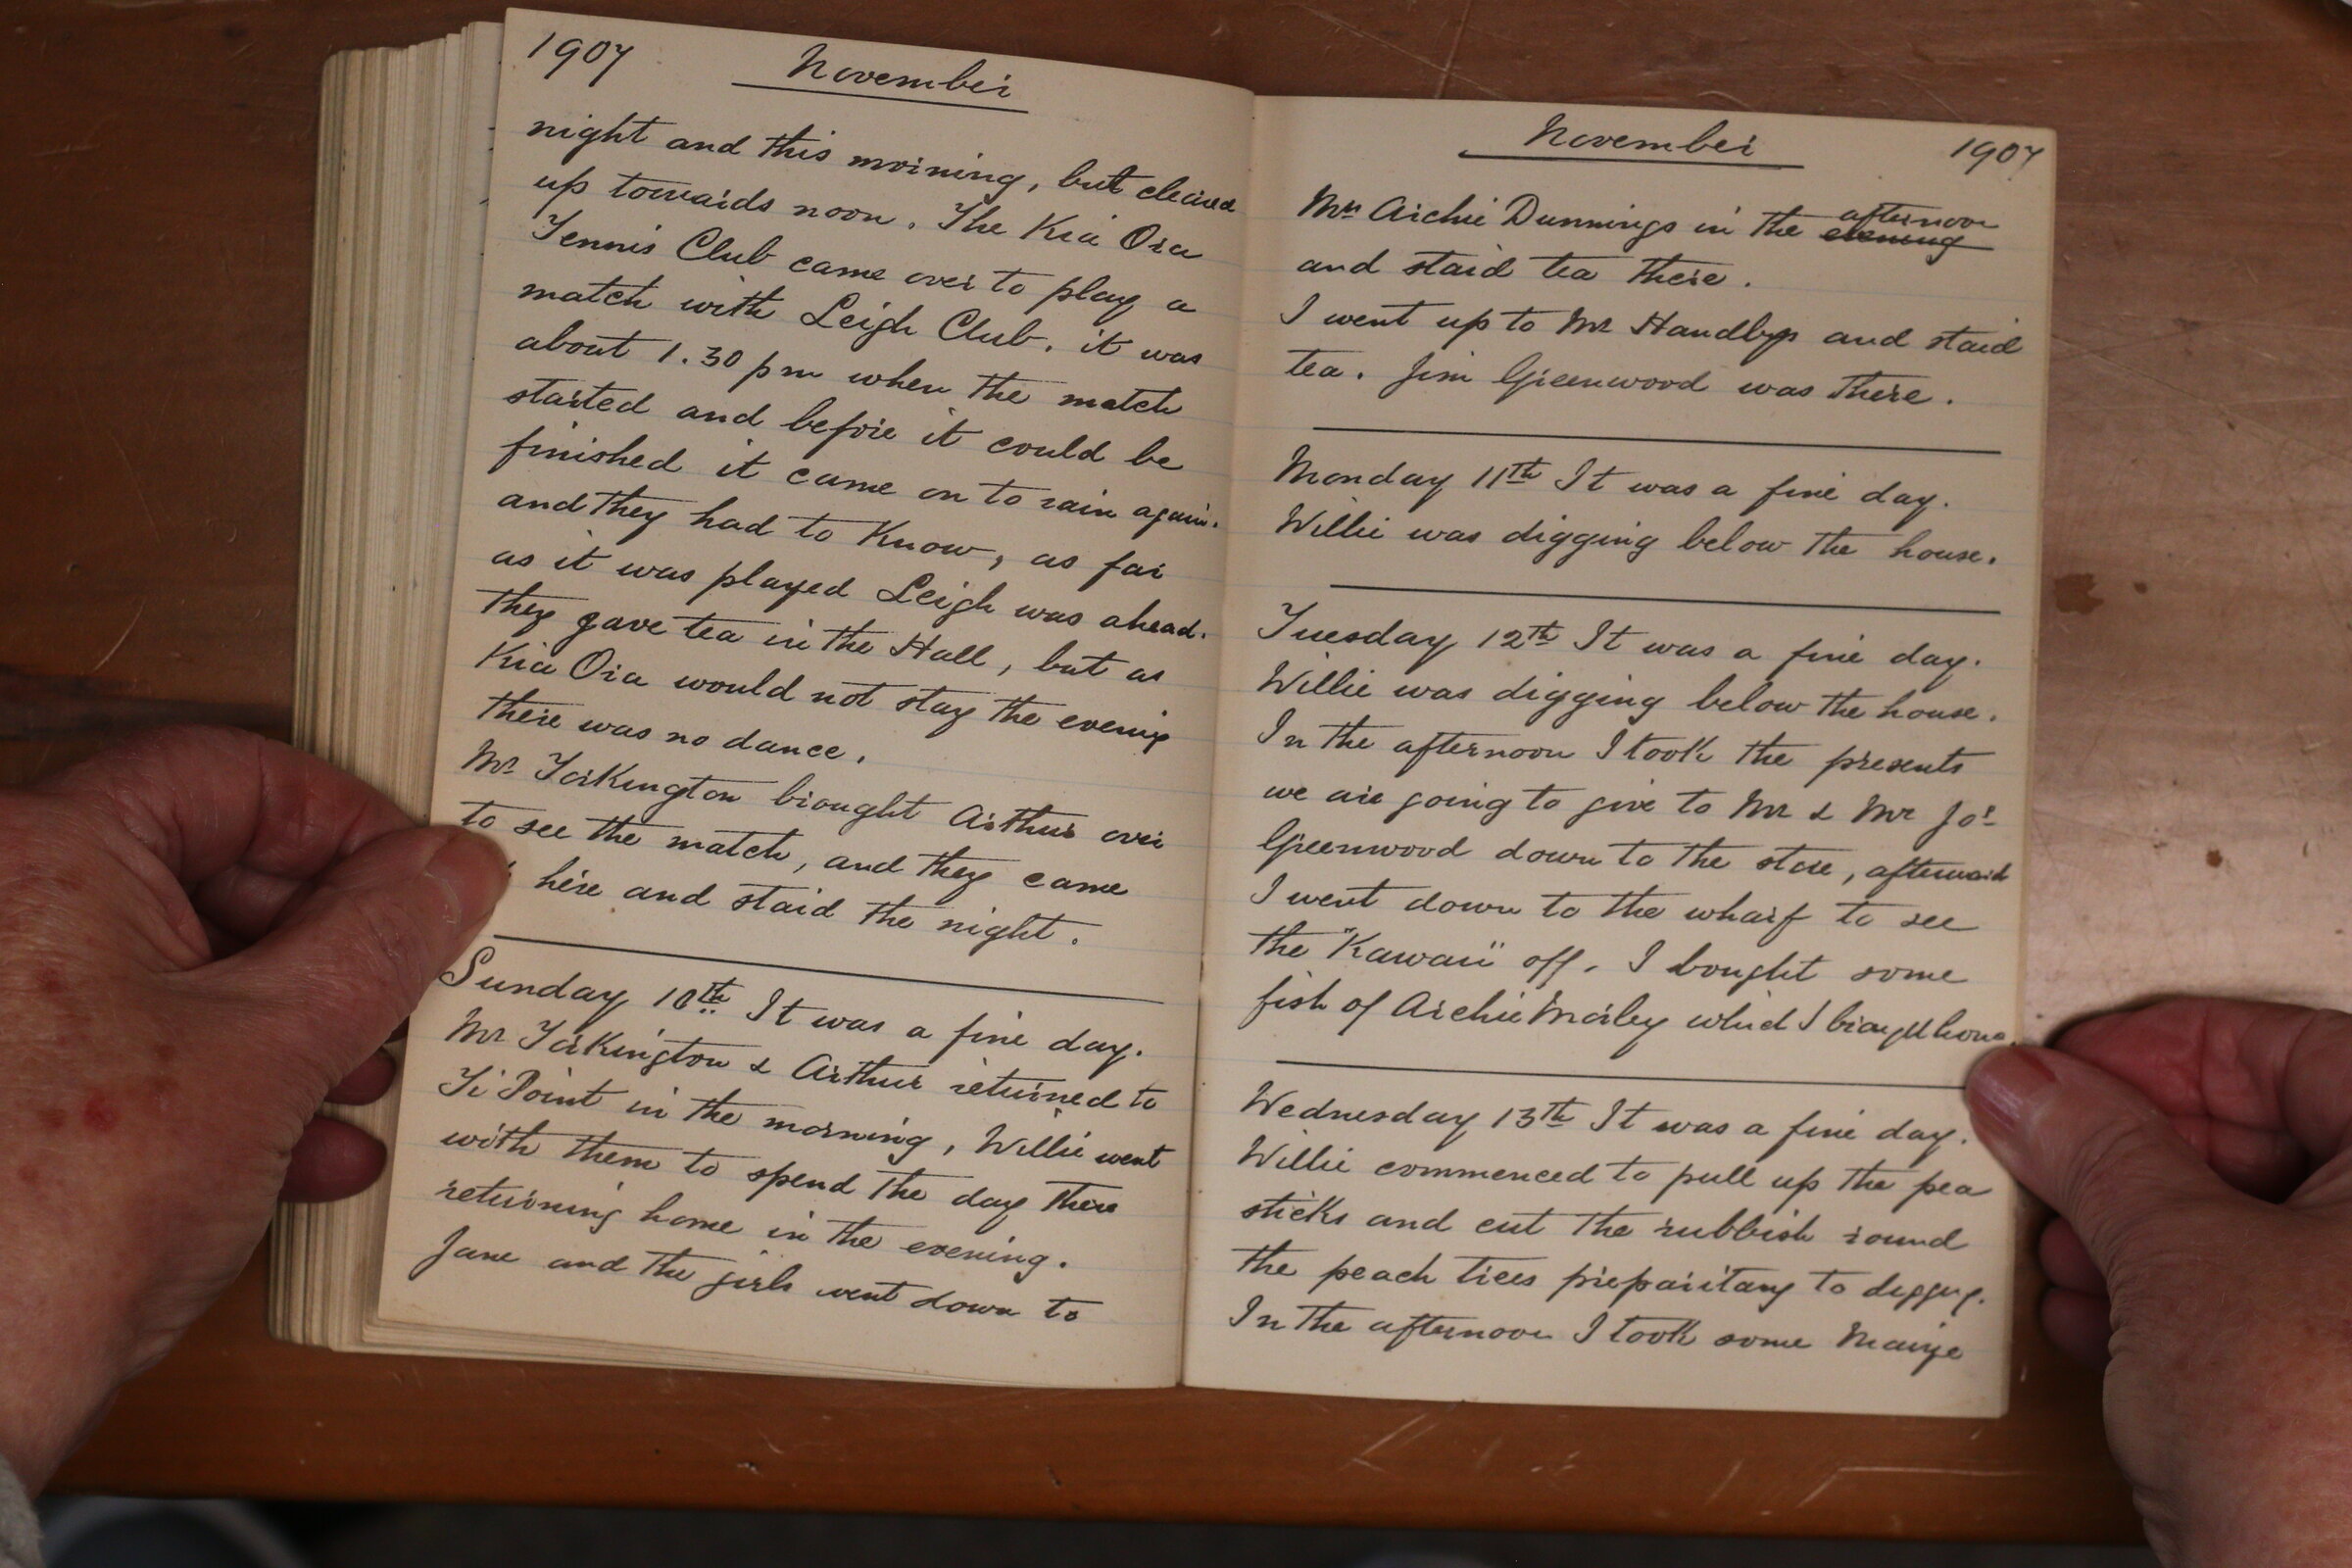 1907 November
night and this morning, but cleared
up towards noon. The Kia Ora
Tennis Club came over to play a
match with Leigh Club. it was
about 1.30 pm when the match
started and before it could be
finished it came on to rain again.
and they had to Know, as far
as it was played Leigh was ahead.
They gave tea in the Hall, but as
Kia Ora would not stay the evening
there was no dance.
Mr Torkington brought Arthur over
to see the match, and they came
here and staid the night.
Sunday 10th It was a fine day.
Mr Torkington & Arthur returned to
Ti Point in the morning, Willie went
with them to spend the day there
returning home in the evening.
Jane and the girls went down to
November 1907
Mrs Archie Dunnings in the evening afternoon
and staid tea there.
I went up to Mr Handbys and staid
tea. Jim Greenwood was there.
Monday 11th It was a fine day.
Willie was digging below the house.
Tuesday 12th It was a fine day.
Willie was digging below the house.
In the afternoon I took the presents
we are going to give to Mr & Mr Jos
Greenwood down to the store, afterward
I went down to the wharf to see
the "Kawau" off. I bought some
fish of Archie which I brought home.
Wednesday 13th It was a fine day.
Willie commenced to pull up the pea
sticks and cut the rubbish round
the peach trees preparitary to digging.
In the afternoon I took some Maize